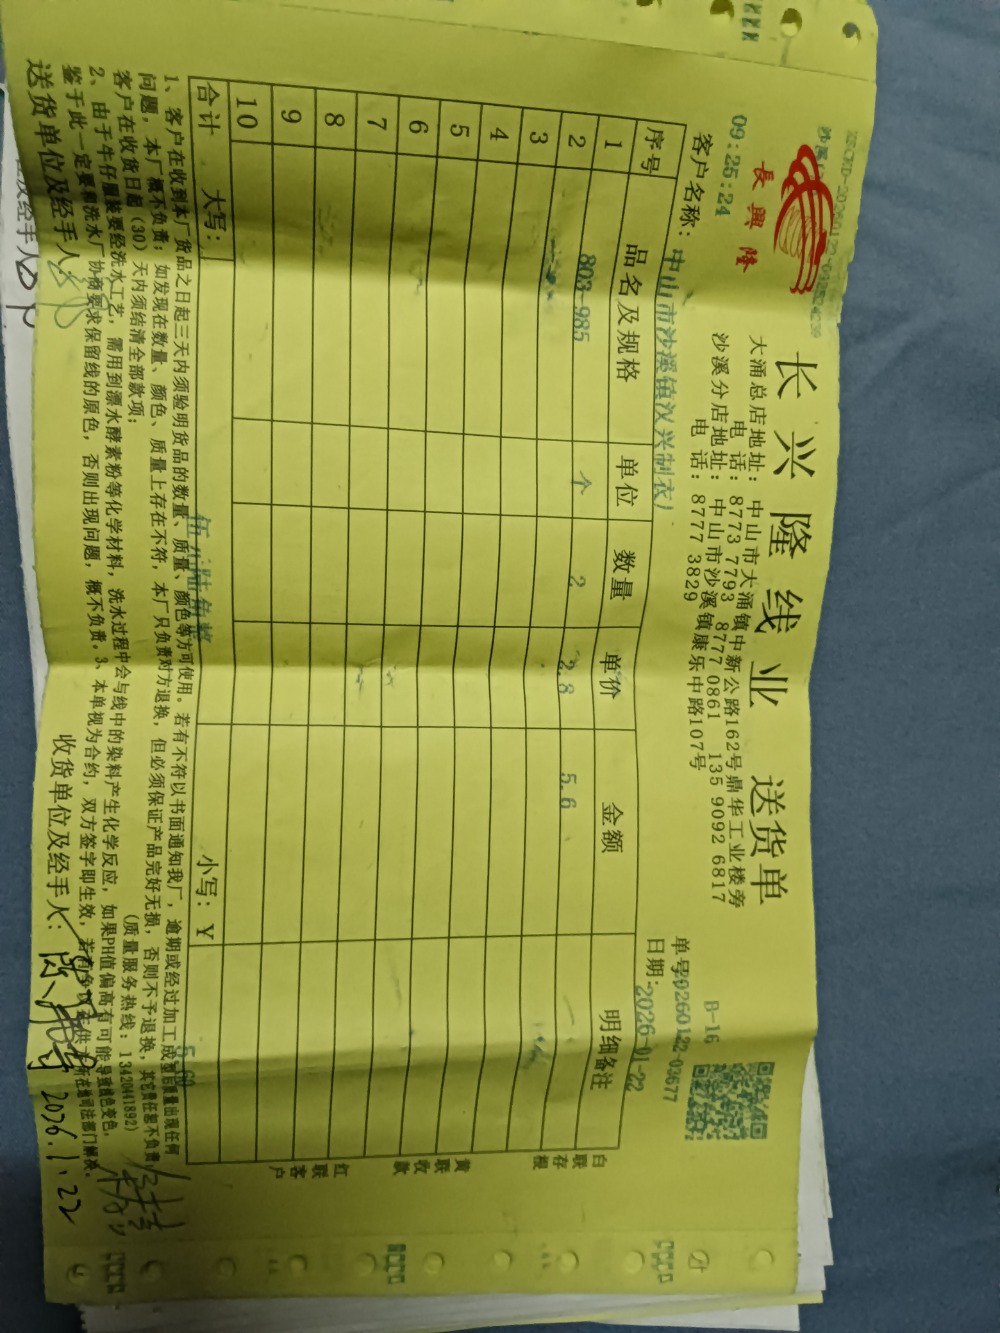 長興隆
长兴隆线业 送货单
大涌总店地址：中山市大涌镇中新公路162号鼎华工业楼旁
电 话：8773 7793 8777 0861 135 9092 6817
沙溪分店地址：中山市沙溪镇康乐中路107号
电 话：8777 3829
B-16
09:25:24
单号20260122-03677
客户名称：中山市沙溪镇汉兴制衣厂
日期：2026-01-22
序号 品名及规格 单位 数量 单价 金额 明细备注
1 803-985 个 2 2.8 5.6
2
3
4
5
6
7
8
9
10
合计 大写：伍元陆角整 小写：￥ 5.60
白联存根
黄联收款
红联客户
1、客户在收到本厂货品之日起三天内须验明货品的数量、质量、颜色等方可使用。若有不符以书面通知我厂，逾期或经过加工成型后质量出现任何
问题，本厂概不负责；如发现在数量、颜色、质量上存在不符，本厂只负责对方退换，但必须保证产品完好无损，否则不予退换，其它责任恕不负责；
客户在收货日起（30）天内须结清全部款项； （质量服务热线：13420441892）
2、由于牛仔服装要经洗水工艺，需用到漂水酵素粉等化学材料，洗水过程中会与线中的染料产生化学反应，如果PH值偏高有可能导致线色变色，
鉴于此一定要和洗水厂协商要求保留线的原色，否则出现问题，概不负责。3、本单视为合约，双方签字即生效，若有争议在供方所在地司法部门解决。
送货单位及经手人： 收货单位及经手人： 2026.1.22